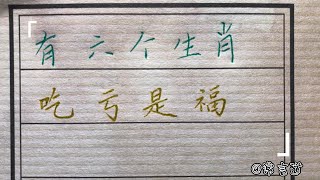 有六个生肖
吃亏是福